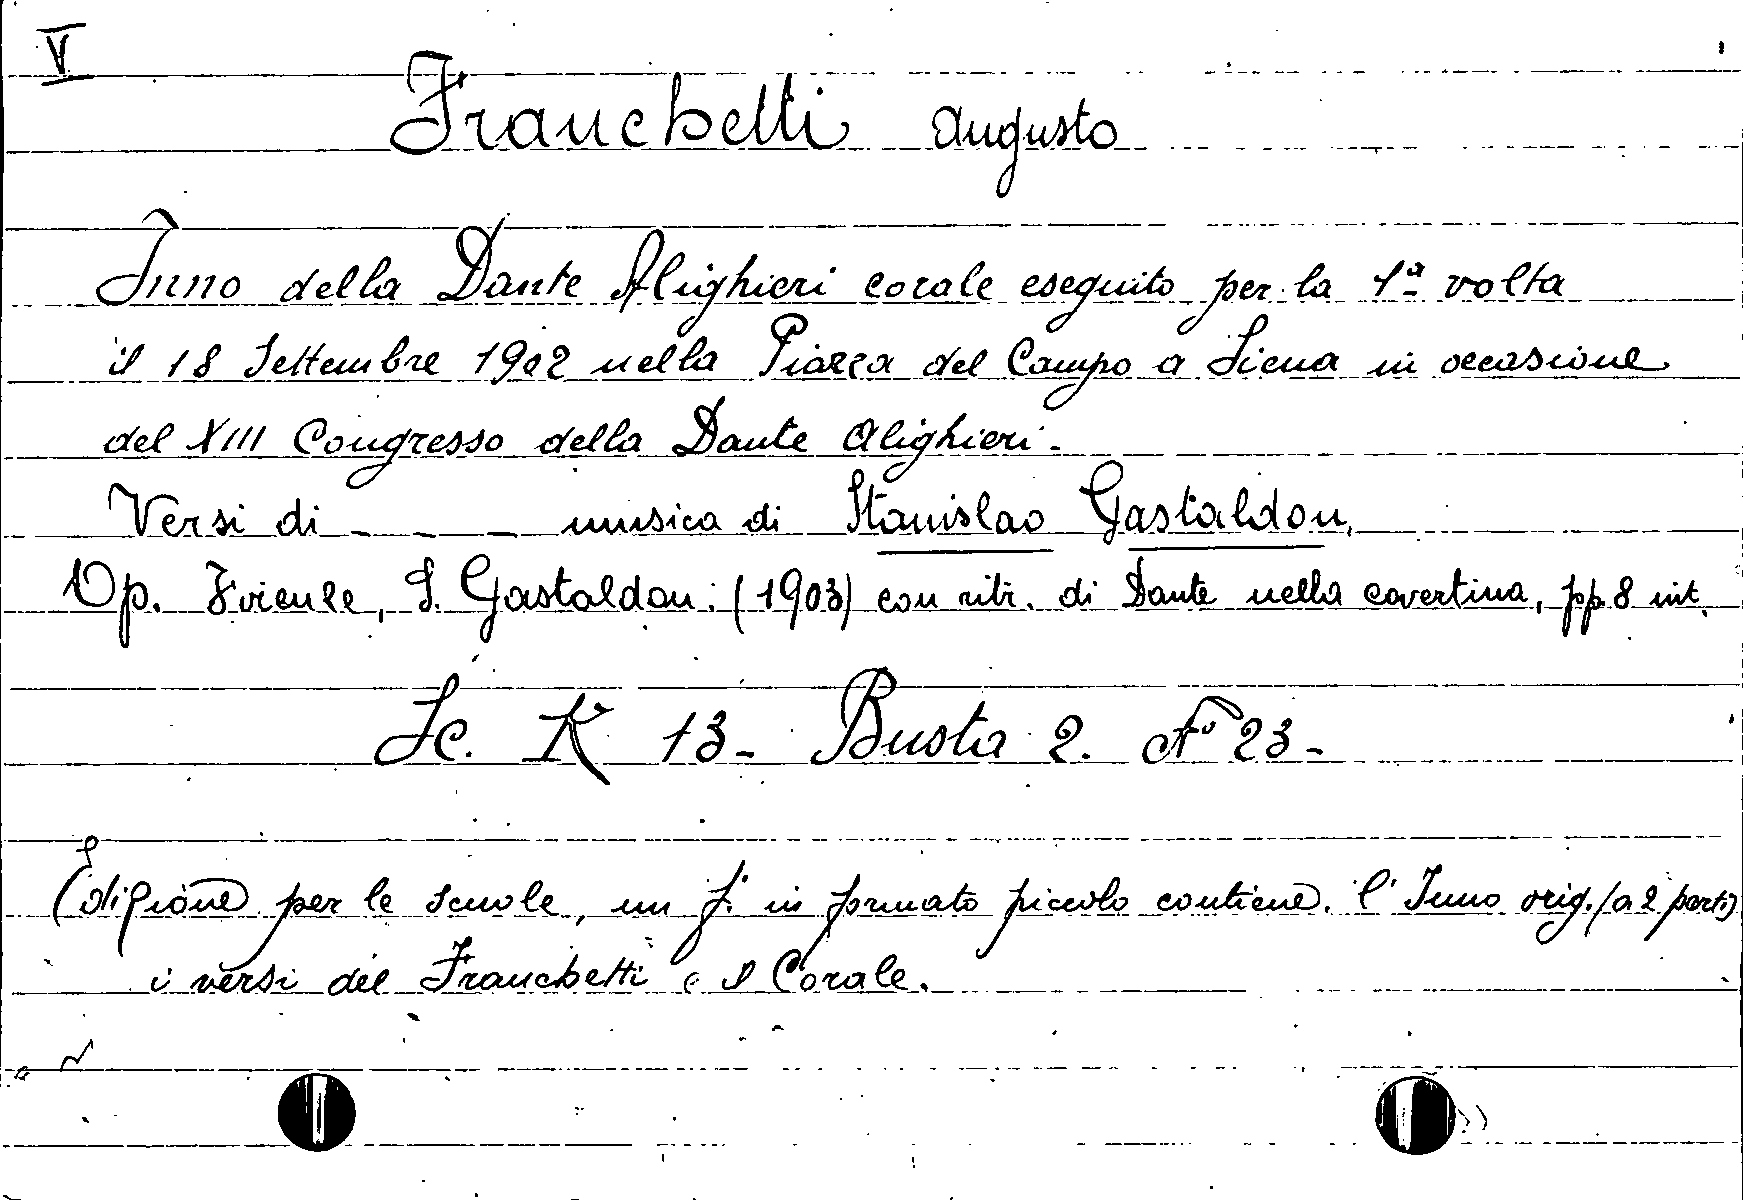 V
Franchetti Augusto
Inno della Dante Alighieri corale eseguito per la 1ª volta
il 18 Settembre 1902 nella Piazza del Campo a Siena in occasione
del XIII Congresso della Dante Alighieri.
Versi di _ _ _ musica di Stanislao Gastaldon.
Op. Firenze, S. Gastaldon. (1903) con ritr. di Dante nella covertina, pp. 8 int.
Sc. K 13 - Busta 2. N° 23 -
(Edizione per le scuole, un f. in formato piccolo contiene. l'Inno orig. (a 2 parti)
i versi del Franchetti e il Corale.